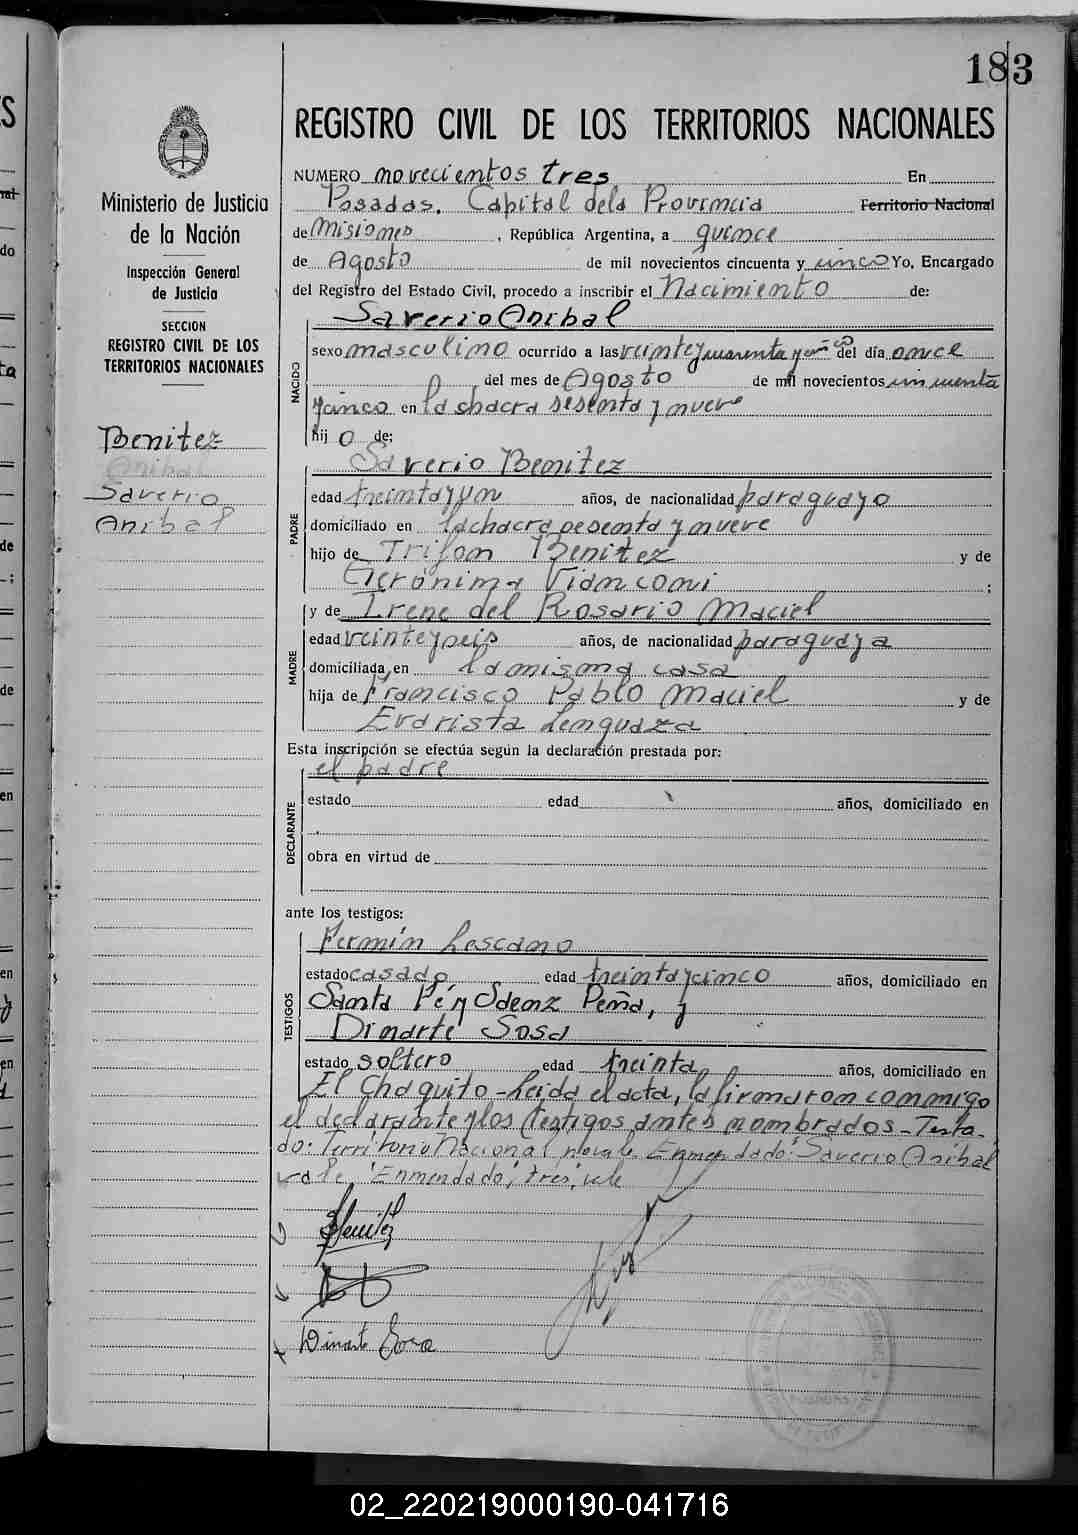 183
REGISTRO CIVIL DE LOS TERRITORIOS NACIONALES
Ministerio de Justicia
de la Nación
Inspección General
de Justicia
SECCION
REGISTRO CIVIL DE LOS
TERRITORIOS NACIONALES
Benitez
Anibal
Saverio
Anibal
NUMERO novecientos tres En
Posadas, Capital dela Provincia Territorio Nacional
de Misiones, República Argentina, a quince
de Agosto de mil novecientos cincuenta y cinco Yo, Encargado
del Registro del Estado Civil, procedo a inscribir el Nacimiento de:
NACIDO
Saverio Anibal
sexo masculino ocurrido a las veinte y cuarenta y cinco del día once
del mes de Agosto de mil novecientos cincuenta
y cinco en la chacra sesenta y nueve
hijo de:
PADRE
Saverio Benitez
edad treinta y un años, de nacionalidad paraguayo
domiciliado en la chacra sesenta y nueve
hijo de Trifon Benitez y de
Gerónima Vianconi;
MADRE
y de Irene del Rosario Maciel
edad veinte y seis años, de nacionalidad paraguaya
domiciliada en la misma casa
hija de Francisco Pablo Maciel y de
Evarista Lenguaza
Esta inscripción se efectúa según la declaración prestada por:
DECLARANTE
el padre
estado edad años, domiciliado en
obra en virtud de
ante los testigos:
TESTIGOS
Fermín Lescano
estado casado edad treinta y cinco años, domiciliado en
Santa Fé y Sáenz Peña, y
Dinarte Sosa
estado soltero edad treinta años, domiciliado en
El Chaquito - Leída el acta, la firmaron conmigo
el declarante y los testigos antes nombrados - Testa-
do: Territorio Nacional, no vale. Enmendado: Saverio Anibal
vale, Enmendado, tres, vale
Benitez
Dinarte Sosa
POSADAS
02_220219000190-041716